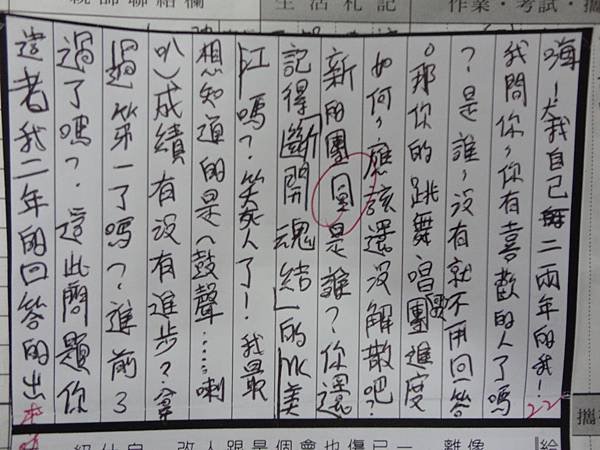 親師聯絡欄 生活札記 作業‧考試‧攜
嗨！大我自己二兩年的我！
我問你，你有喜歡的人了嗎
？是誰，沒有就不用回答
。那你的跳舞唱歌團進度
如何，應該還沒解散吧？
新的團員是誰？你還
記得「斷開魂結」的冰美
江嗎？笑死人了！我最
想知道的是（鼓聲……喇
叭）成績有沒有進步？拿
過第一了嗎？進前3
過了嗎？這此問題你
這者我二年的回答的出
22
攜